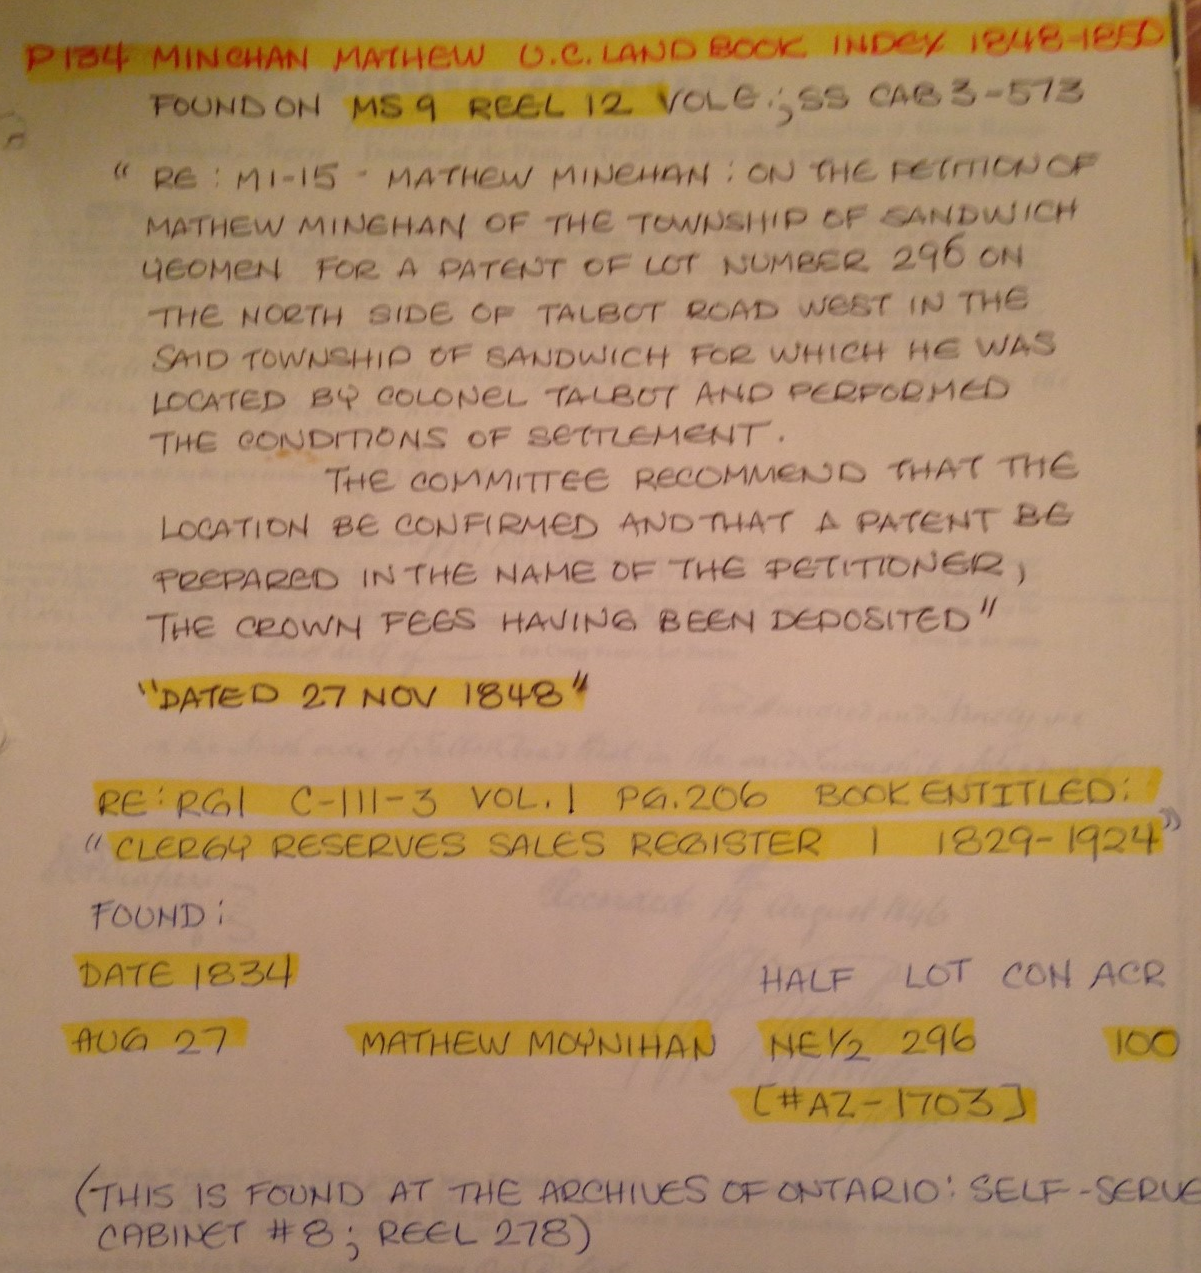 P134 MINEHAN MATHEW U.C. LAND BOOK INDEX 1848-1850
FOUND ON MS 9 REEL 12 VOL E.; SS CAB 3-573
" RE: M1-15 - MATHEW MINEHAN: ON THE PETITION OF
MATHEW MINEHAN OF THE TOWNSHIP OF SANDWICH
YEOMEN FOR A PATENT OF LOT NUMBER 296 ON
THE NORTH SIDE OF TALBOT ROAD WEST IN THE
SAID TOWNSHIP OF SANDWICH FOR WHICH HE WAS
LOCATED BY COLONEL TALBOT AND PERFORMED
THE CONDITIONS OF SETTLEMENT.
THE COMMITTEE RECOMMEND THAT THE
LOCATION BE CONFIRMED AND THAT A PATENT BE
PREPARED IN THE NAME OF THE PETITIONER,
THE CROWN FEES HAVING BEEN DEPOSITED"
"DATED 27 NOV 1848"
RE: RG1 C-111-3 VOL. 1 PG. 206 BOOK ENTITLED:
"CLERGY RESERVES SALES REGISTER 1 1829-1924"
FOUND:
DATE 1834 HALF LOT CON ACR
AUG 27 MATHEW MOYNIHAN NE1/2 296 100
[#AZ-1703]
(THIS IS FOUND AT THE ARCHIVES OF ONTARIO: SELF-SERVE
CABINET #8; REEL 278)